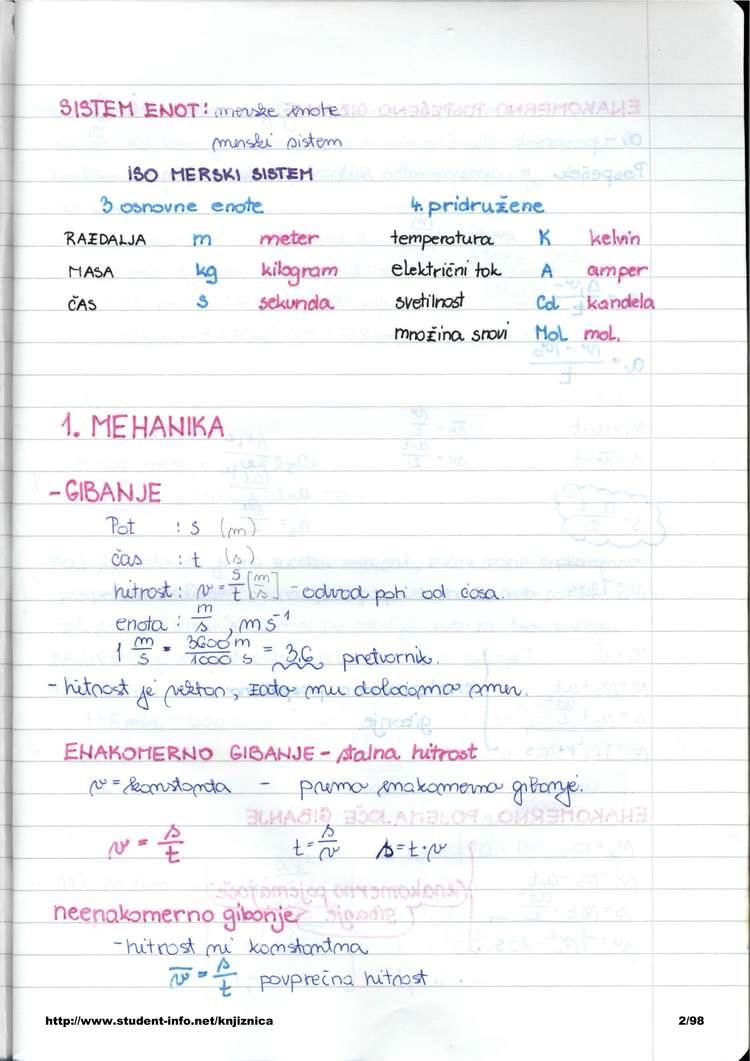 SISTEM ENOT: merske enote
merski sistem
ISO MERSKI SISTEM
3 osnovne enote 4. pridružene
RAZDALJA m meter temperatura K kelvin
MASA kg kilogram električni tok A amper
ČAS s sekunda svetilnost Cd kandela
množina snovi Mol mol.
1. MEHANIKA
- GIBANJE
Pot : s (m)
čas : t (s)
hitrost : v = s/t [m/s] - odvod poti od časa
enota : m/s, ms⁻¹
1 m/s = 3600 m/1000 s = 3,6 pretvornik.
- hitrost je vektor, zato mu določamo smer.
ENAKOMERNO GIBANJE - stalna hitrost
v = konstanta - premo enakomerno gibanje.
v = s/t t = s/v s = t · v
neenakomerno gibanje
- hitrost ni konstantna
v̅ = s/t povprečna hitrost
http://www.student-info.net/knjiznica 2/98